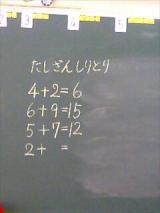 3 4 5
たしざんしりとり
4+2=6
6+9=15
5+7=12
2+ =